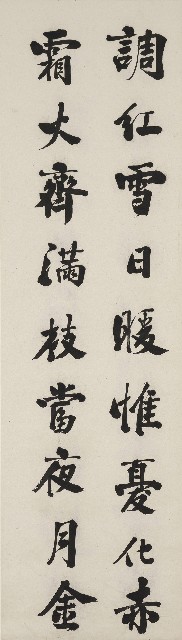 調紅雪日暖惟憂化赤
霜火齊滿枝當夜月金